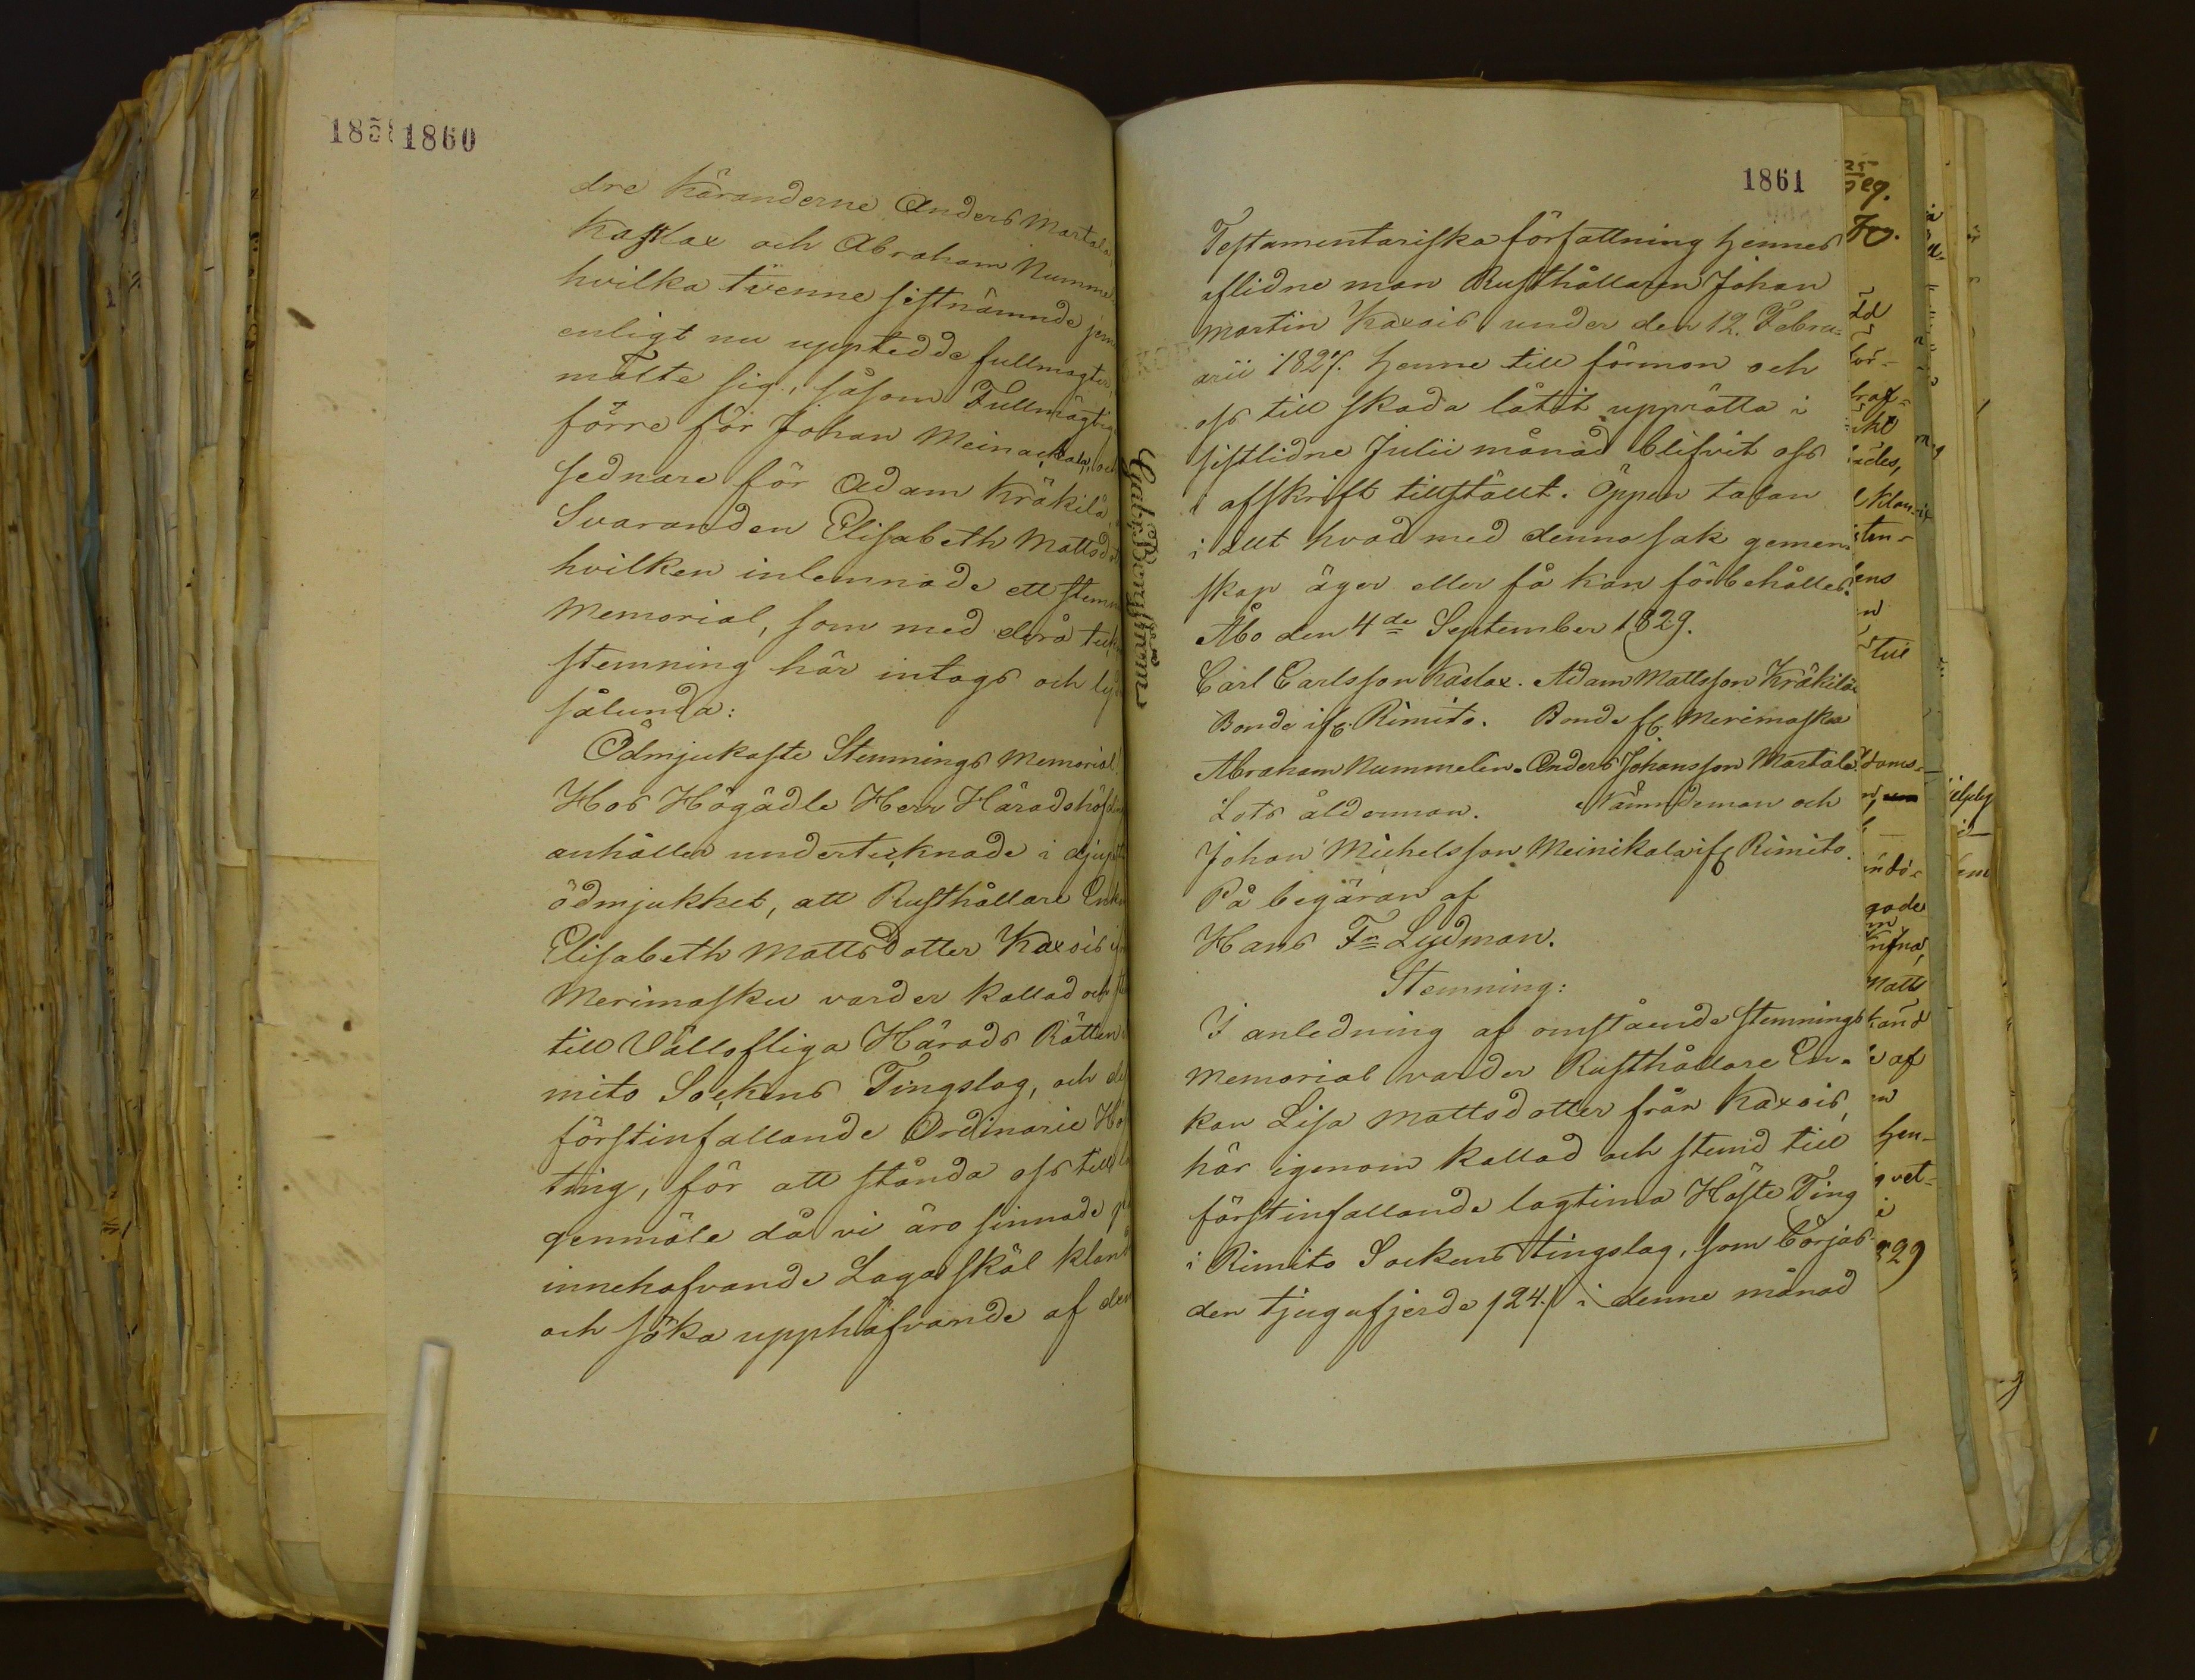 1860
dre Käranderne Anders Martala,
Kaslax och Abraham Numme-
hvilka tvenne sistnämnde jem
enligt nu uppted de fullmagter,
mälte sig, såsom Fullmägtig
förre för Johan Meinackala, och
sednare för Adam Kräkilä
Svaranden Elisabeth Mattsdot
hvilken inlemnade ett stem
Memorial, som med derå teck
stemning här intags och lyd
sålunda:
Ödmjukaste Stemnings Memorial!
Hos Högädle Herr Häradshöfd
anhålla undertecknade i djup
ödmjukhet, att Rusthållare Enk
Elisabeth Mattsdotter Kaxois
Merimasku varder kallad och
till Vällofliga Härads Rätten
mito Sockens Tingslag, och
förstinfallande Ordinarie Hö
ting, för att stånda oss till
genmäle då vi äro sinnade
innehafvande Laga skäl kland
och söka upphäfvande af den
Gab: Bergström
1861
Testamentariska författning hennes
aflidne man Rusthållaren Johan
Martin Kaxois under den 12. Febru-
arii 1827. henne till förmon och
oss till skada låtit upprätta i
sistlidne Julii månad blifvit oss
i afskrift tillstäldt. Öppen talan
i allt hvad med denna sak gemen-
skap äger eller få kan förbehålles.
Åbo den 4de September 1829.
Carl Carlsson Kaslax. Adam Mattsson Kräkilä
Bonde ifr. Rimito. Bonde fr. Merimasku
Abraham Nummelin. Anders Johansson Martala.
Lots ålderman. Nämndeman och
Johan Michelsson Meinikala ifr Rimito.
På begäran af
Hans Fr Lydman.
Stemning:
I anledning af omstående stemnings
Memorial varder Rusthållare En-
kan Lisa Mattsdotter från Kaxois,
här igenom kallad och stemd till
förstinfallande lagtima Höste Ting
i Rimito Sockens tingslag, som börjas
den tjugufjerde /24./ i denne månad